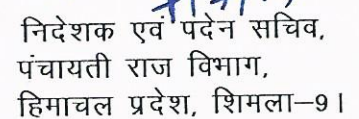 निदेशक एवं पदेन सचिव,
पंचायती राज विभाग,
हिमाचल प्रदेश, शिमला–9।